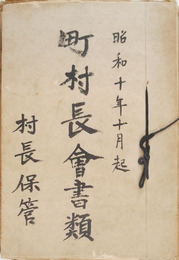 昭和十年十月起
町村長會書類
村長保管